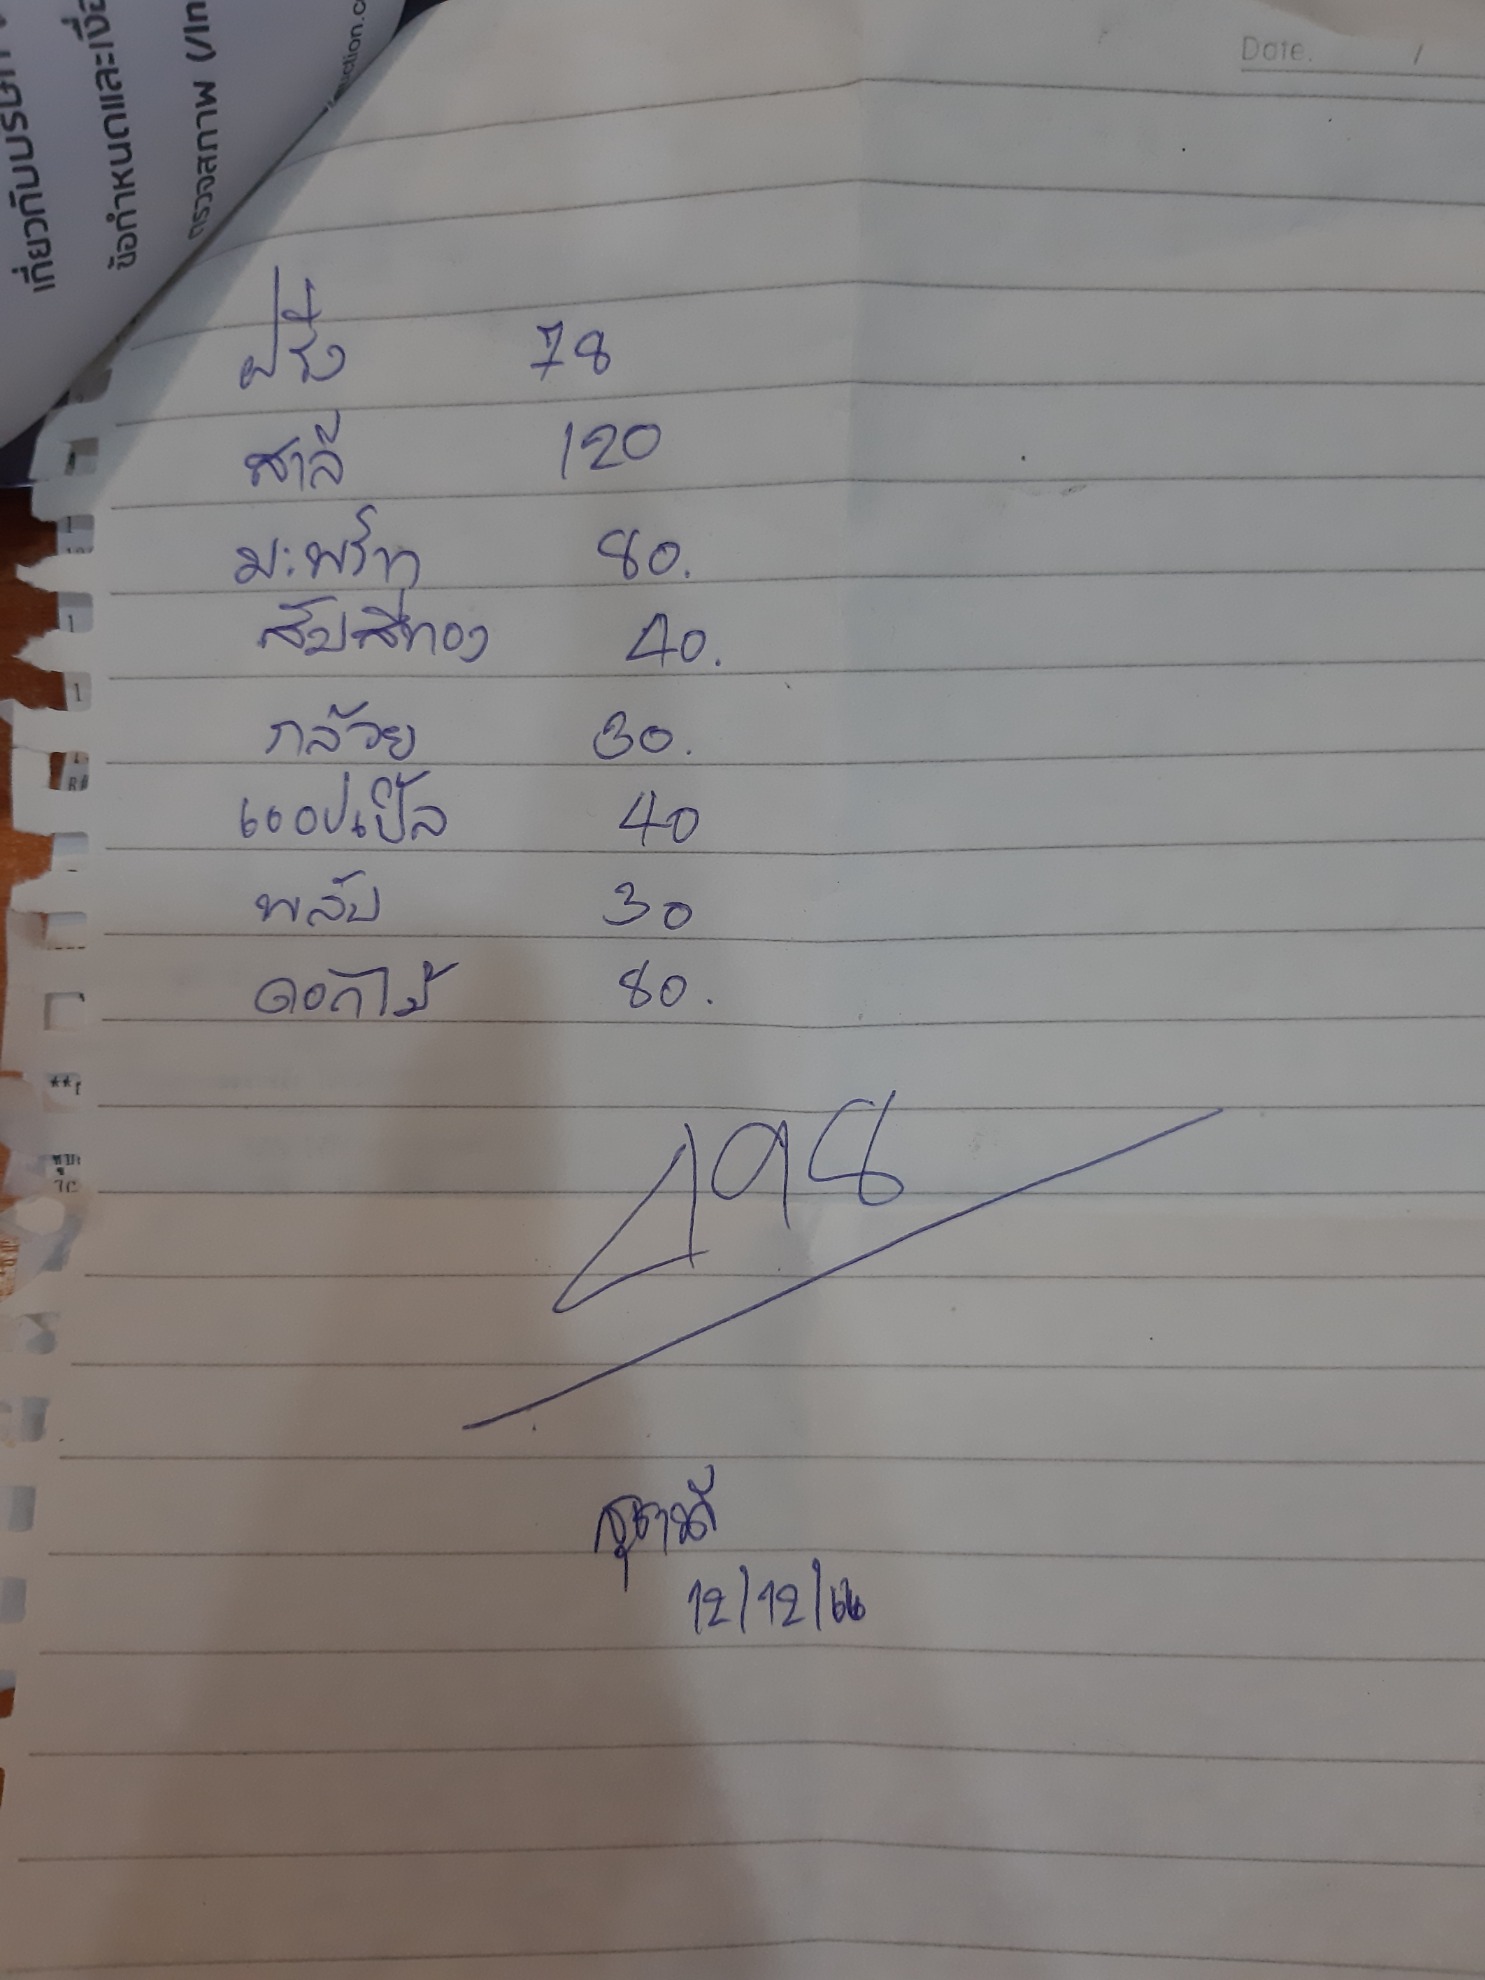 เกี่ยวกับบริษัท
ข้อกำหนดและเงื่อ
ตรวจสภาพ (/In
ction.c
Date. /
ฝรั่ง 78
สาลี่ 120
มะพร้าว 80.
สัปสีทอง 40.
กล้วย 30.
แอปเปิ้ล 40
พลับ 30
ดอกไม้ 80.
498
12/12/66